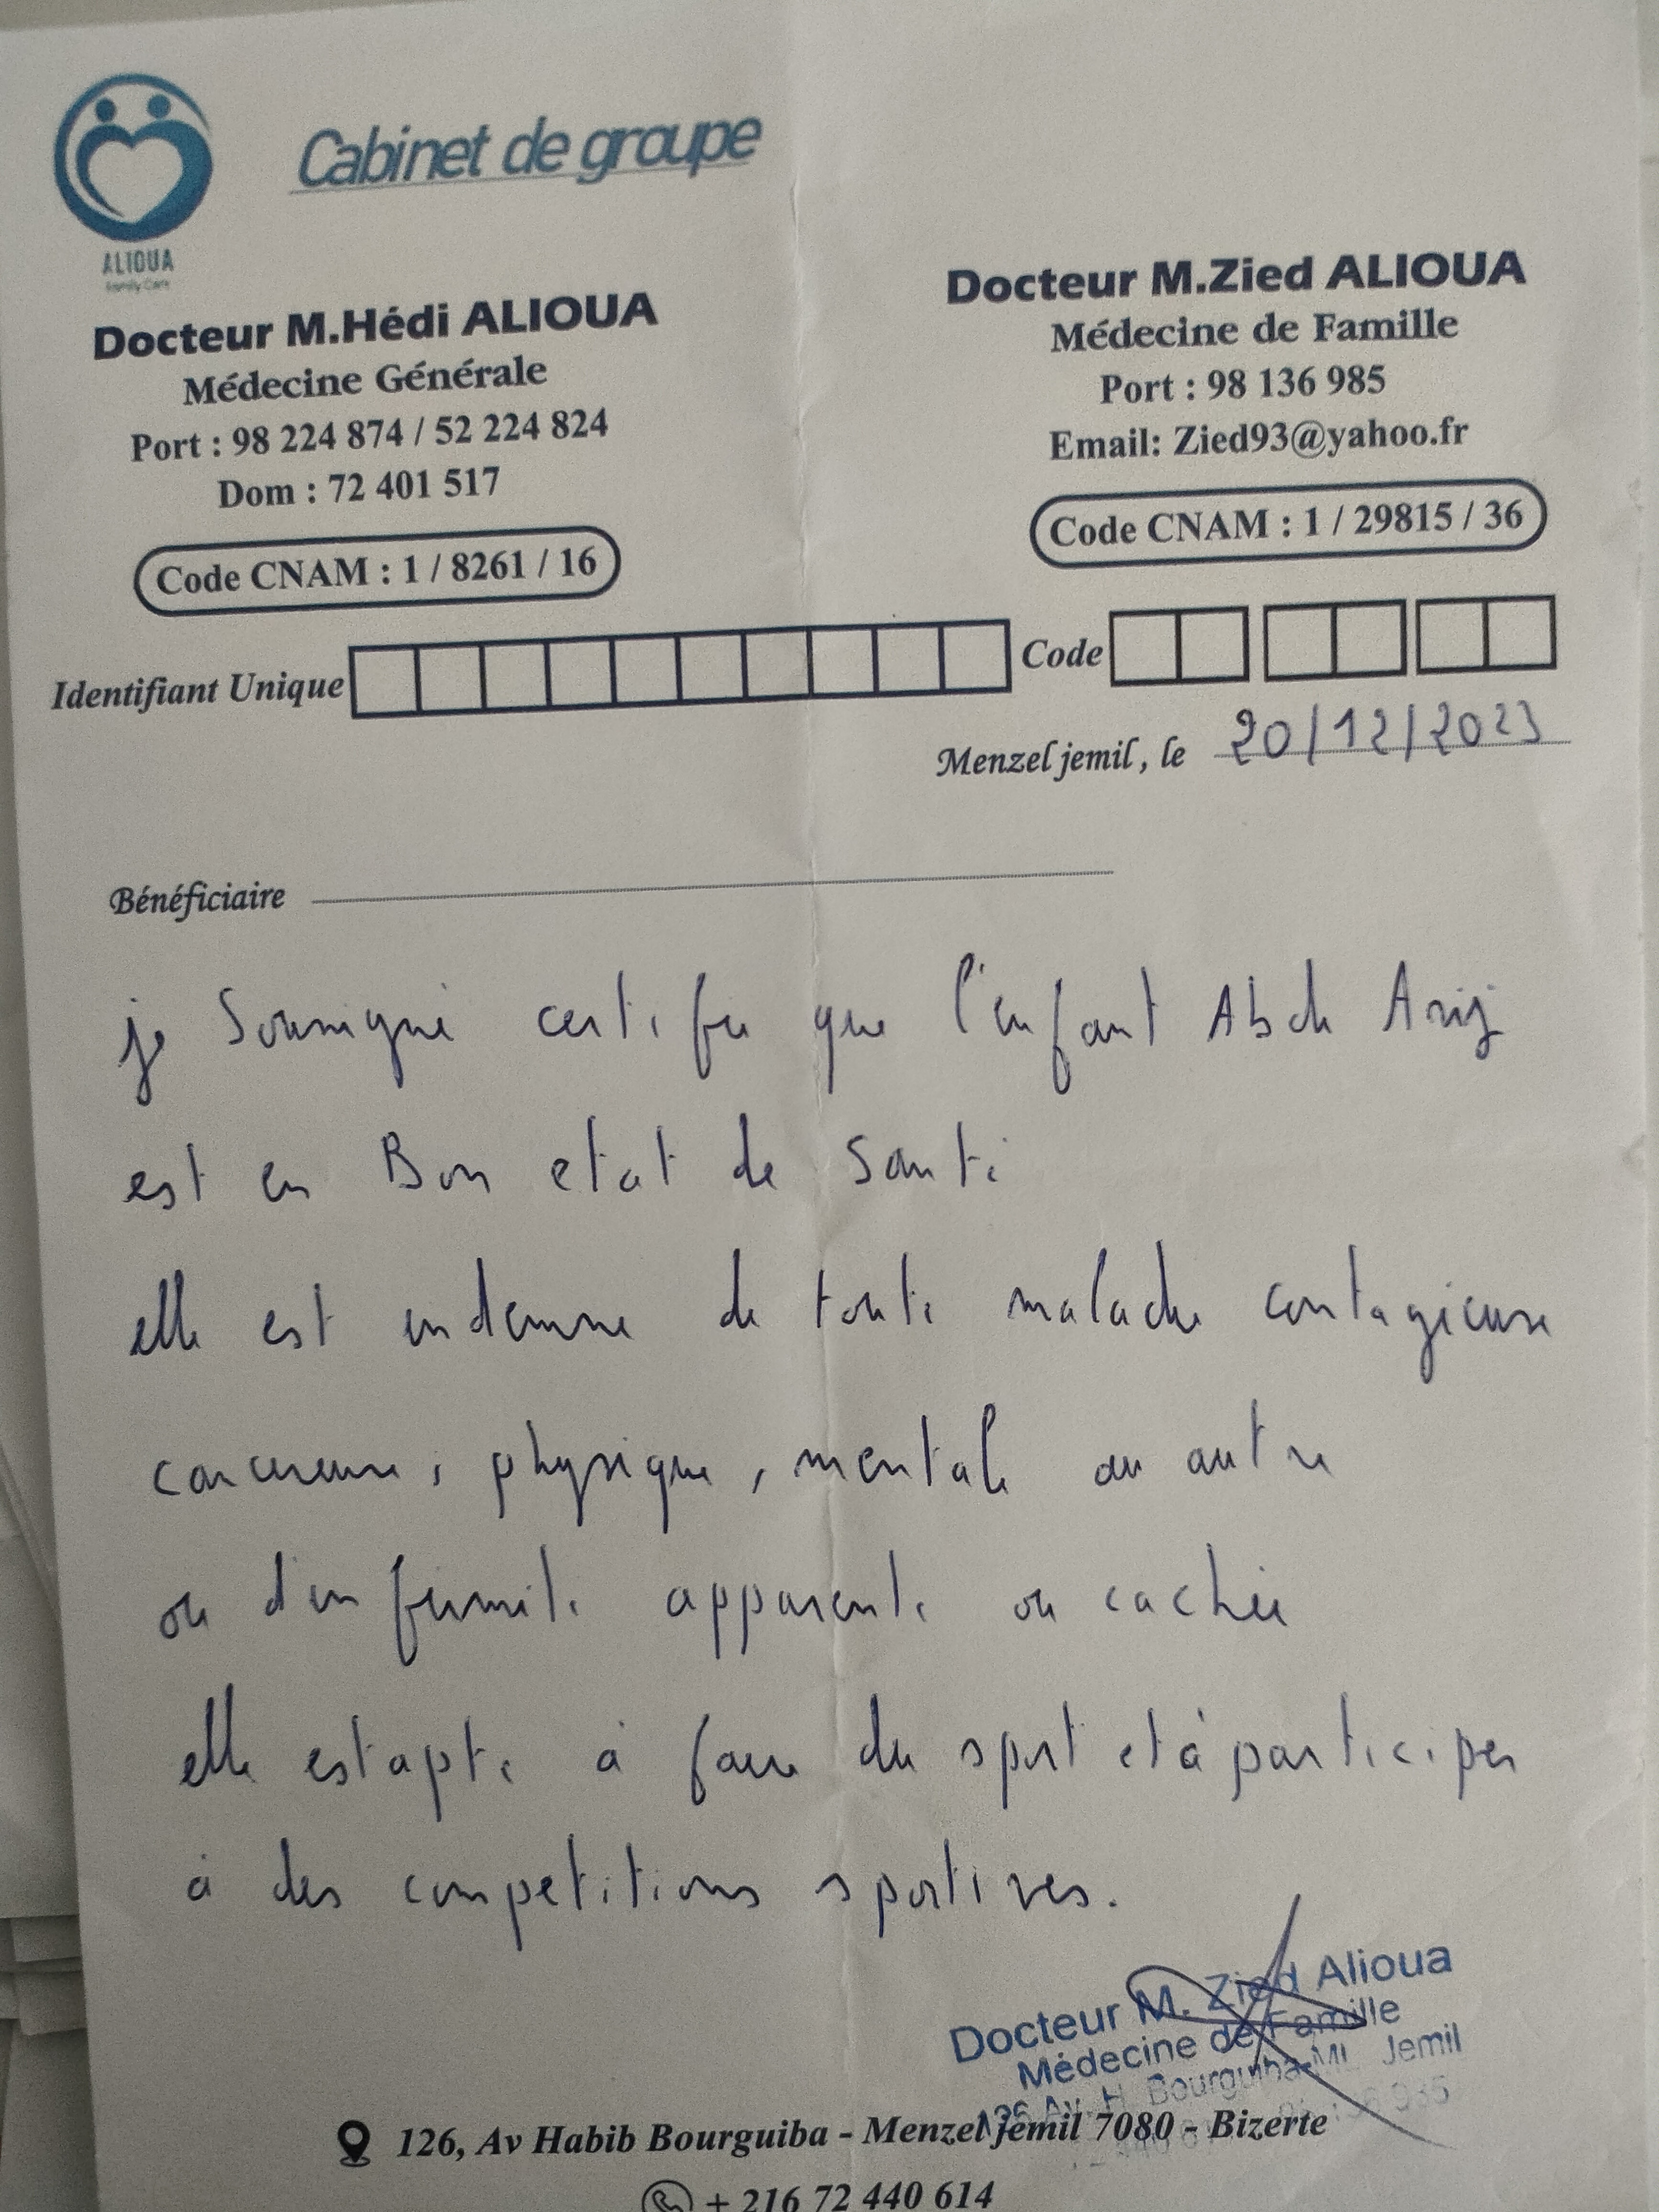 Cabinet de groupe
ALIOUA
Family Care
Docteur M.Hédi ALIOUA
Médecine Générale
Port : 98 224 874 / 52 224 824
Dom : 72 401 517
Code CNAM : 1 / 8261 / 16
Docteur M.Zied ALIOUA
Médecine de Famille
Port : 98 136 985
Email: Zied93@yahoo.fr
Code CNAM : 1 / 29815 / 36
Identifiant Unique Code
Menzel jemil, le 20/12/2023
Bénéficiaire
je Soussigné certifie que l'enfant Arij
est en Bon etat de Santé
elle est indemne de toute maladie contagieuse
cancereuse, physique, mentale ou autre
ou d'infirmité apparente ou cachée
elle est apte à faire du sport et à participer
à des competitions sportives.
Docteur M. Zied Alioua
Médecine de Famille
126 Av. H. Bourguiba-ML Jemil
126, Av Habib Bourguiba - Menzel jemil 7080 - Bizerte
+ 216 72 440 614